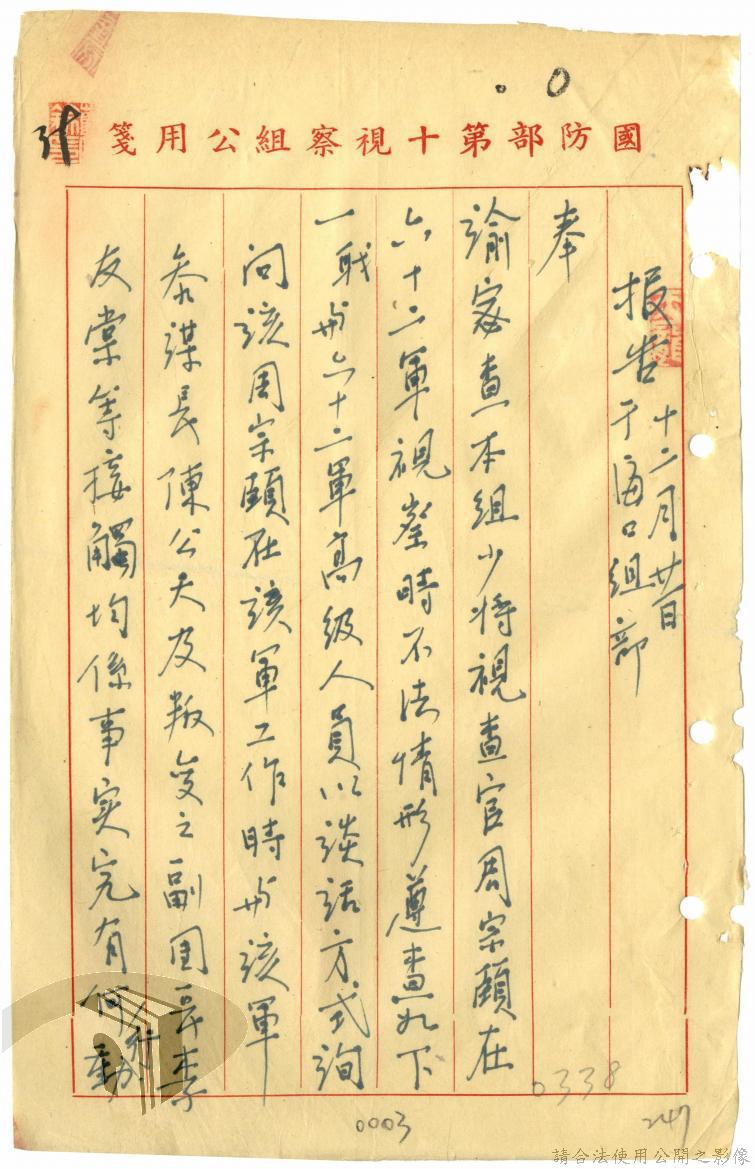 0
國防部第十視察組公用箋
报告 十二月廿日
于海口組部
奉
諭密查本組少將視查官周宗頤在
六十二軍視察時不法情形遵查如下
一、职與六十二軍高級人員以談話方式詢
问該周宗頤在該軍工作時與該軍
参謀長陳公天及叛变之副团長李
友棠等接觸均係事实究有何行動
0338
0003
247
請合法使用公開之影像